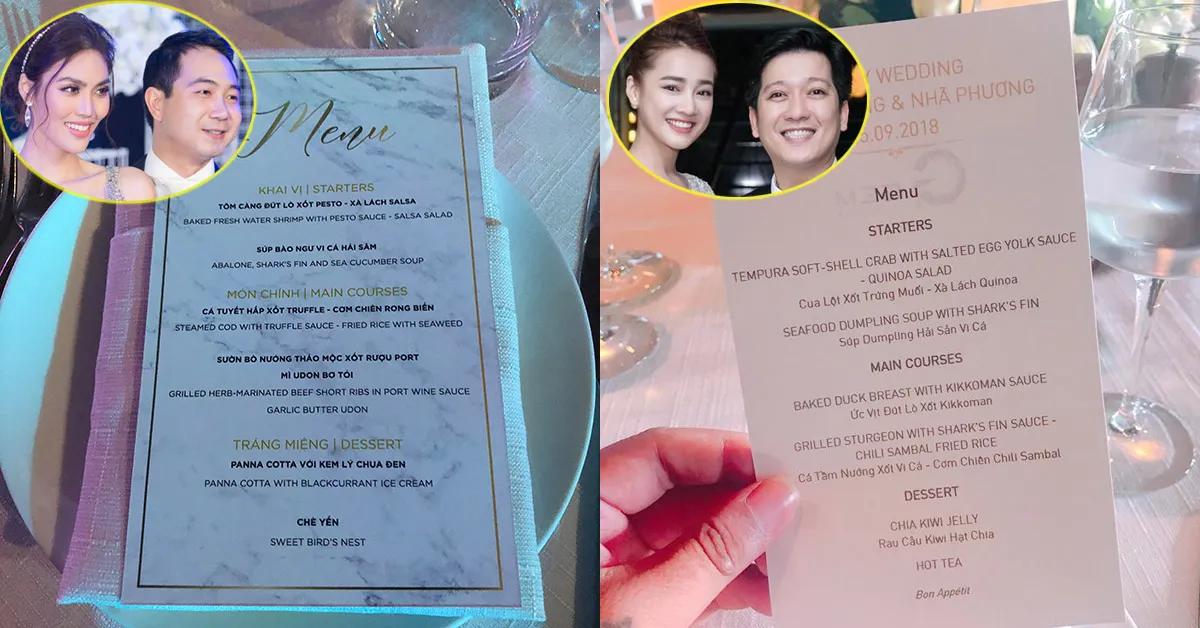 Menu
KHAI VỊ | STARTERS
TÔM CÀNG ĐÚT LÒ XỐT PESTO - XÀ LÁCH SALSA
BAKED FRESH WATER SHRIMP WITH PESTO SAUCE - SALSA SALAD
SÚP BÀO NGƯ VI CÁ HẢI SÂM
ABALONE, SHARK'S FIN AND SEA CUCUMBER SOUP
MÓN CHÍNH | MAIN COURSES
CÁ TUYẾT HẤP XỐT TRUFFLE - CƠM CHIÊN RONG BIỂN
STEAMED COD WITH TRUFFLE SAUCE - FRIED RICE WITH SEAWEED
SƯỜN BÒ NƯỚNG THẢO MỘC XỐT RƯỢU PORT
MÌ UDON BƠ TỎI
GRILLED HERB-MARINATED BEEF SHORT RIBS IN PORT WINE SAUCE
GARLIC BUTTER UDON
TRÁNG MIỆNG | DESSERT
PANNA COTTA VỚI KEM LÝ CHUA ĐEN
PANNA COTTA WITH BLACKCURRANT ICE CREAM
CHÈ YẾN
SWEET BIRD'S NEST
WEDDING
& NHÃ PHƯƠNG
.09.2018
Menu
STARTERS
TEMPURA SOFT-SHELL CRAB WITH SALTED EGG YOLK SAUCE
- QUINOA SALAD
Cua Lột Xốt Trứng Muối - Xà Lách Quinoa
SEAFOOD DUMPLING SOUP WITH SHARK'S FIN
Súp Dumpling Hải Sản Vi Cá
MAIN COURSES
BAKED DUCK BREAST WITH KIKKOMAN SAUCE
Ức Vịt Đút Lò Xốt Kikkoman
GRILLED STURGEON WITH SHARK'S FIN SAUCE -
CHILI SAMBAL FRIED RICE
Cá Tầm Nướng Xốt Vi Cá - Cơm Chiên Chili Sambal
DESSERT
CHIA KIWI JELLY
Rau Câu Kiwi Hạt Chia
HOT TEA
Bon Appétit